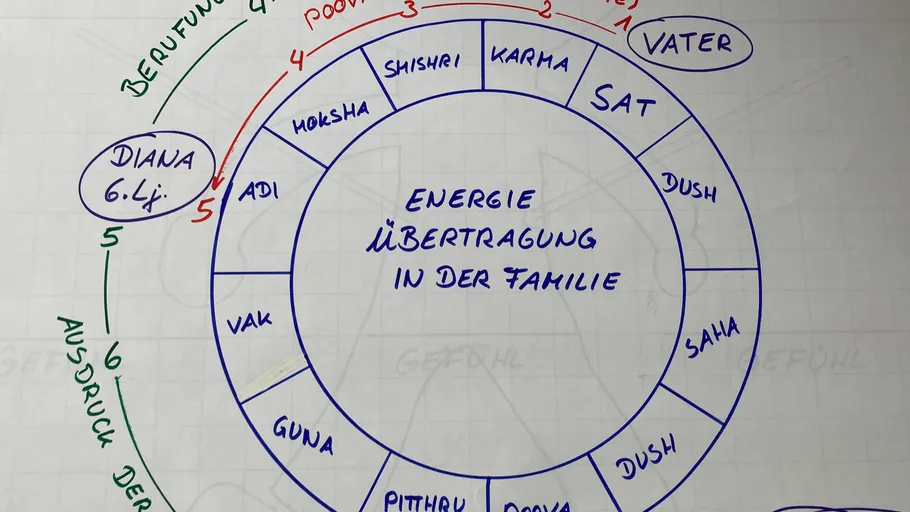 BERUFUNG
4
POOVA
1
2
3
4
5
VATER
DIANA
6. Lj.
5
6
AUSDRUCK DER
SHISHRI
KARMA
SAT
DUSH
SAHA
DUSH
POOVA
PITTHRU
GUNA
VAK
ADI
MOKSHA
ENERGIE
ÜBERTRAGUNG
IN DER FAMILIE
GEFÜHL
GEFÜHL
GEFÜHL